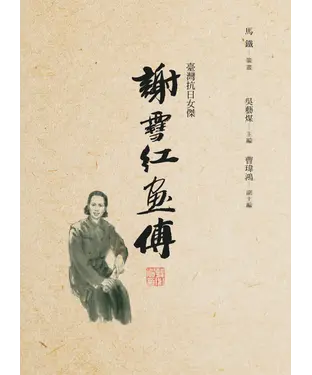 馬鐵
吳藝煤 主編
曹瑋鴻 副主編
臺灣抗日女傑
謝雪紅画傳